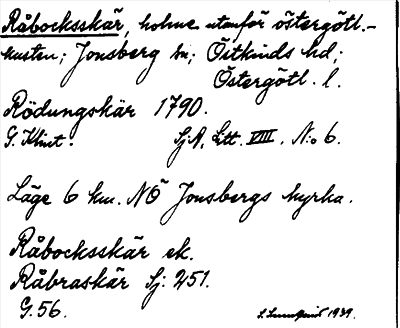 Råbocksskär, holme utanför östergötl.-
kusten; Jonsberg sn; Östkinds hd;
Östergötl. l.
Rödungskär 1790.
G. Klint. SjA, Litt. VIII. N:o 6.
Läge 6 km. NÖ Jonsbergs kyrka.
Råbocksskär ek.
Råbraskär Sj: 251.
G. 56. 1939.